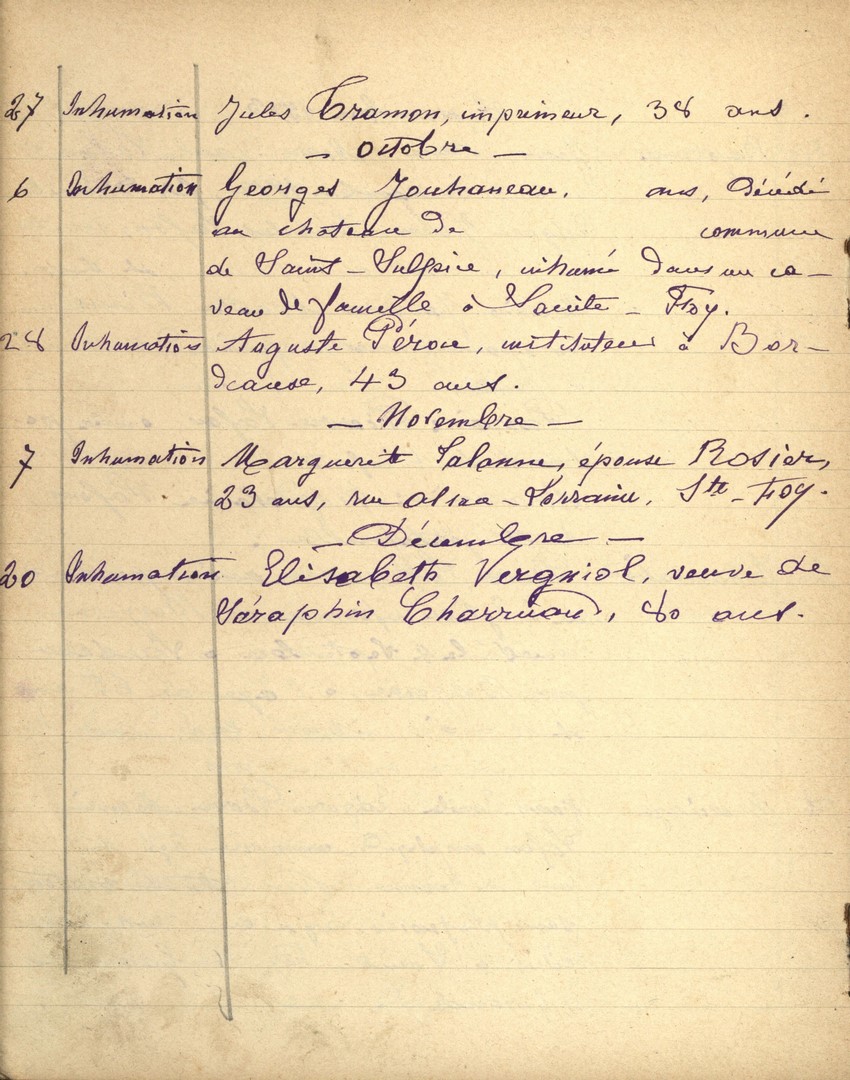 27 Inhumation Jules Tramon, imprimeur, 38 ans.
— Octobre —
6 Inhumation Georges Jouhaneau, ans, décédé
au chateau de commune
de Saint-Sulpice, inhumé dans un ca-
veau de famille à Sainte-Foy.
28 Inhumation Auguste Pérou, instituteur à Bor-
deaux, 43 ans.
— Novembre —
7 Inhumation Marguerite Lalanne, épouse Rosier,
23 ans, rue Alsace-Lorraine, Ste-Foy.
— Décembre —
20 Inhumation Elisabeth Vergniol, veuve de
Séraphin Charriaud, 80 ans.